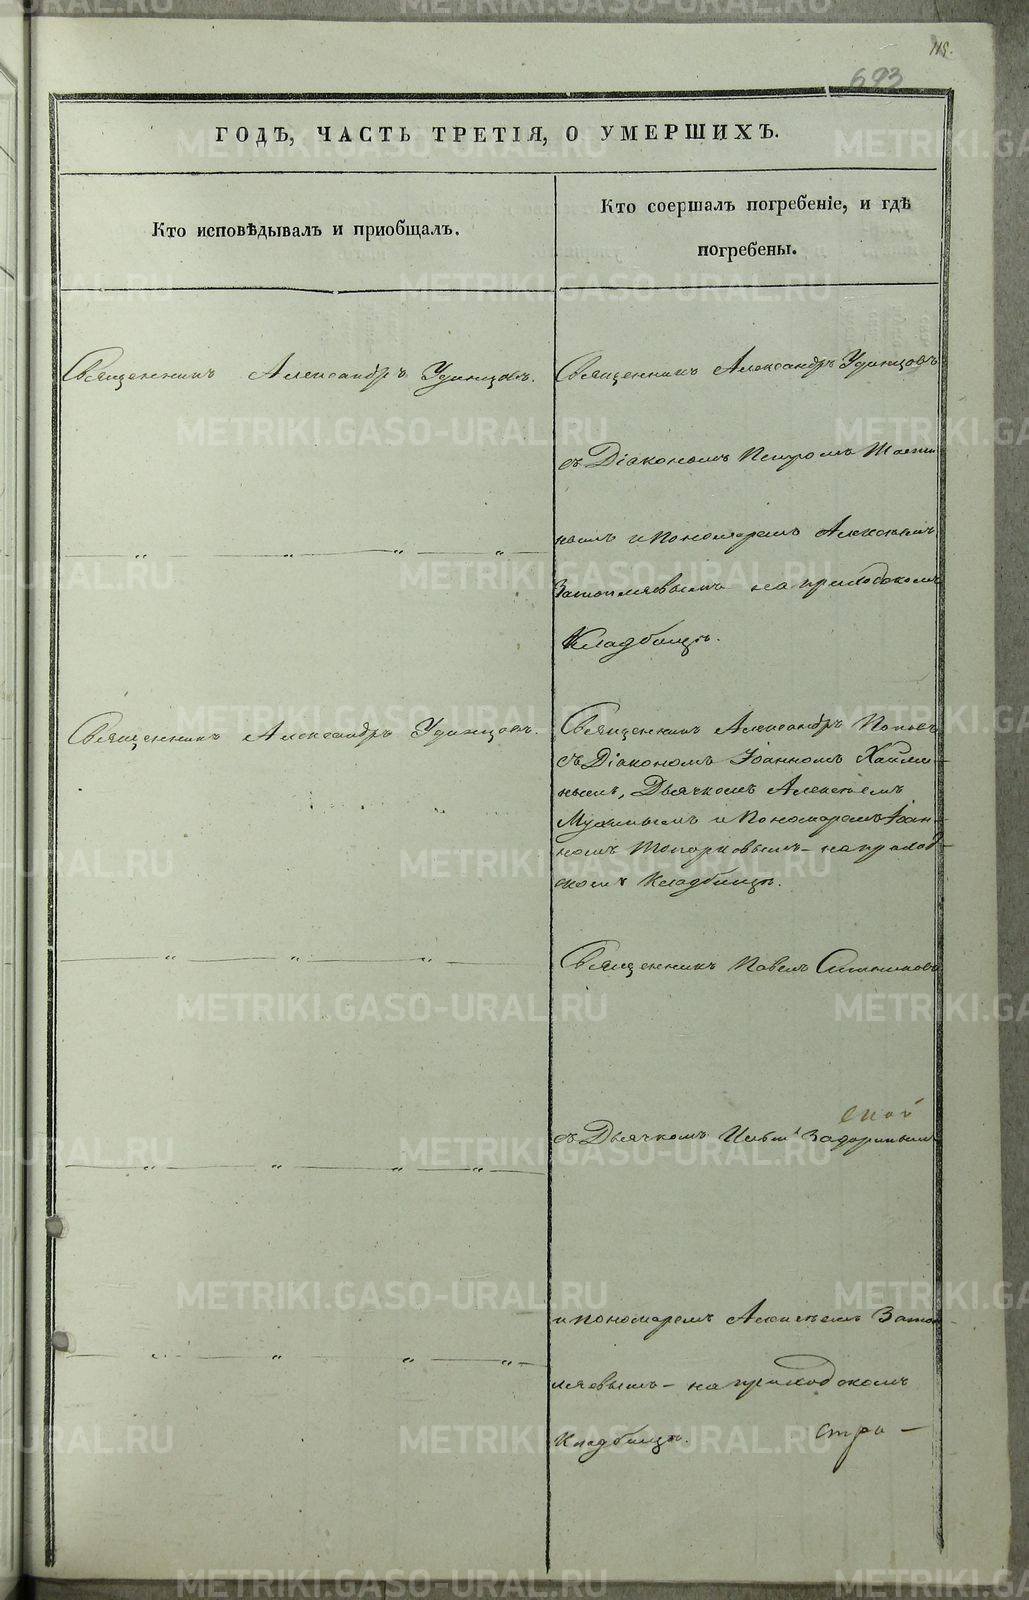 115.
693
ГОДѢ, ЧАСТЬ ТРЕТІЯ, О УМЕРШИХЪ.
Кто исповѣдывалъ и приобщалъ.
Кто соершалъ погребеніе, и гдѣ
погребены.
Священникъ Александръ Удинцовъ.
Священникъ Александръ Удинцовъ
съ Діакономъ Петромъ
нымъ и Пономаремъ Алексѣемъ
Затопляевымъ на приходскомъ
Кладбищѣ.
Священникъ Александръ Удинцовъ.
Священникъ Александръ Поповъ
съ Діакономъ Іоанномъ
нымъ, Дьячкомъ Алексѣемъ
и Пономаремъ Іоан-
номъ Топорковымъ - на приход-
скомъ Кладбищѣ.
Священникъ Павелъ Ситниковъ
съ Дьячкомъ Задоринымъ
и Пономаремъ Алексѣемъ Затоп-
ляевымъ - на приходскомъ
Кладбищѣ.
METRIKI.GASO-URAL.RU